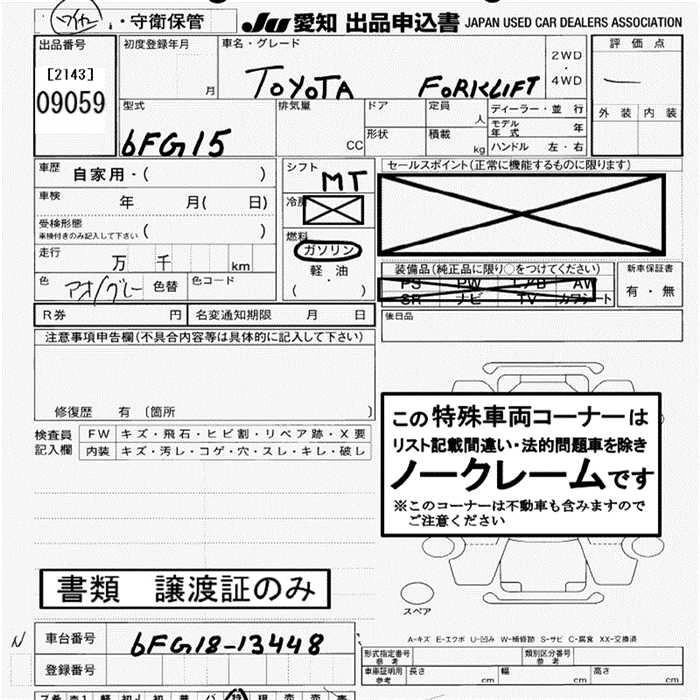 ・守衛保管 JU 愛知 出品申込書 JAPAN USED CAR DEALERS ASSOCIATION
出品番号
[2143]
09059
初度登録年月
月
車名・グレード
TOYOTA FORKLIFT
2WD
・
4WD
評価点
外装 内装
型式
6FG15
排気量
CC
ドア
形状
定員
人
積載
kg
ディーラー・並行
モデル年式 年
ハンドル 左・右
車歴 自家用・( )
車検 年 月( 日)
受検形態
車検付きのみ記入して下さい ( )
走行 万 千 km
色 アオ/グレー 色替 色コード
シフト MT
冷房
燃料
ガソリン
軽・油
( )
セールスポイント(正常に機能するものに限ります)
装備品(純正品に限り○をつけてください)
PS PW エアB AW
SR ナビ TV カワシート
新車保証書
有・無
R券 円 名変通知期限 月 日
後日品
注意事項申告欄(不具合内容等は具体的に記入して下さい)
修復歴 有 〔箇所 〕
検査員記入欄
FW キズ・飛石・ヒビ割・リペア跡・X要
内装 キズ・汚レ・コゲ・穴・スレ・キレ・破レ
この特殊車両コーナーは
リスト記載間違い・法的問題車を除き
ノークレームです
※このコーナーは不動車も含みますので
ご注意ください
書類 譲渡証のみ
スペア
A-キズ E-エクボ U-凹み W-補修跡 S-サビ C-腐食 XX-交換済
N 車台番号 6FG18-13448
登録番号
形式指定番号 参考 類別区分番号 参考
車庫証明用 参考 長さ cm 幅 cm 高さ cm